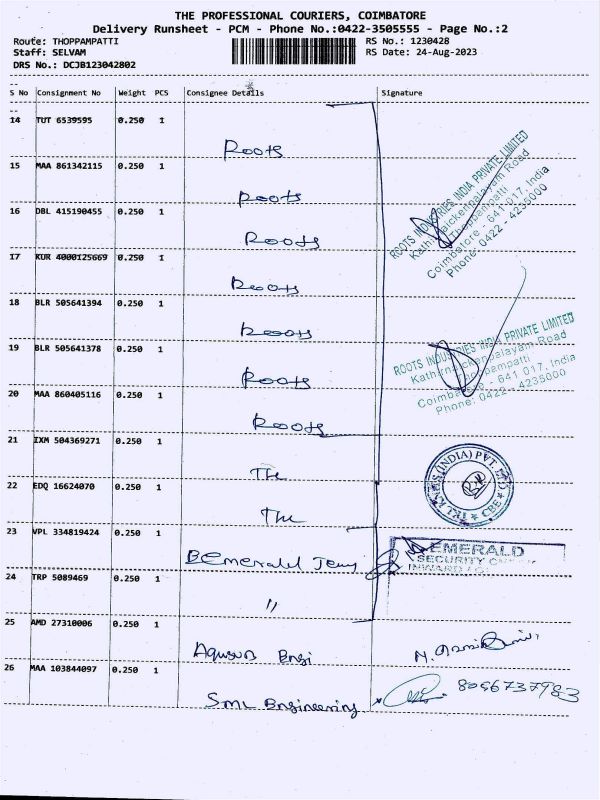 THE PROFESSIONAL COURIERS, COIMBATORE
Delivery Runsheet - PCM - Phone No.:0422-3505555 - Page No.:2
Route: THOPPAMPATTI RS No.: 1230428
Staff: SELVAM RS Date: 24-Aug-2023
DRS No.: DCJB123042802
S No Consignment No Weight PCS Consignee Details Signature
14 TUT 6539595 0.250 1
Roots
15 MAA 861342115 0.250 1
Roots
16 DBL 415190455 0.250 1
Roots
17 KUR 4000125669 0.250 1
Roots
18 BLR 505641394 0.250 1
Roots
19 BLR 505641378 0.250 1
Roots
20 MAA 860405116 0.250 1
Roots
21 IXM 504369271 0.250 1
The
22 EDQ 16624070 0.250 1
The
23 VPL 334819424 0.250 1
Emerald
24 TRP 5089469 0.250 1
"
25 AMD 27310006 0.250 1
26 MAA 103844097 0.250 1
Engineering
ROOTS INDUSTRIES INDIA PRIVATE LIMITED
Kathirnaickenpalayam Road
Thoppampatti
Coimbatore - 641 017, India
Phone: 0422 - 4235000
ROOTS INDUSTRIES INDIA PRIVATE LIMITED
Kathirnaickenpalayam Road
Thoppampatti
Coimbatore - 641 017, India
Phone: 0422 - 4235000
(INDIA) PVT. LTD
CBE
EMERALD
SECURITY
INWARD
8056737983